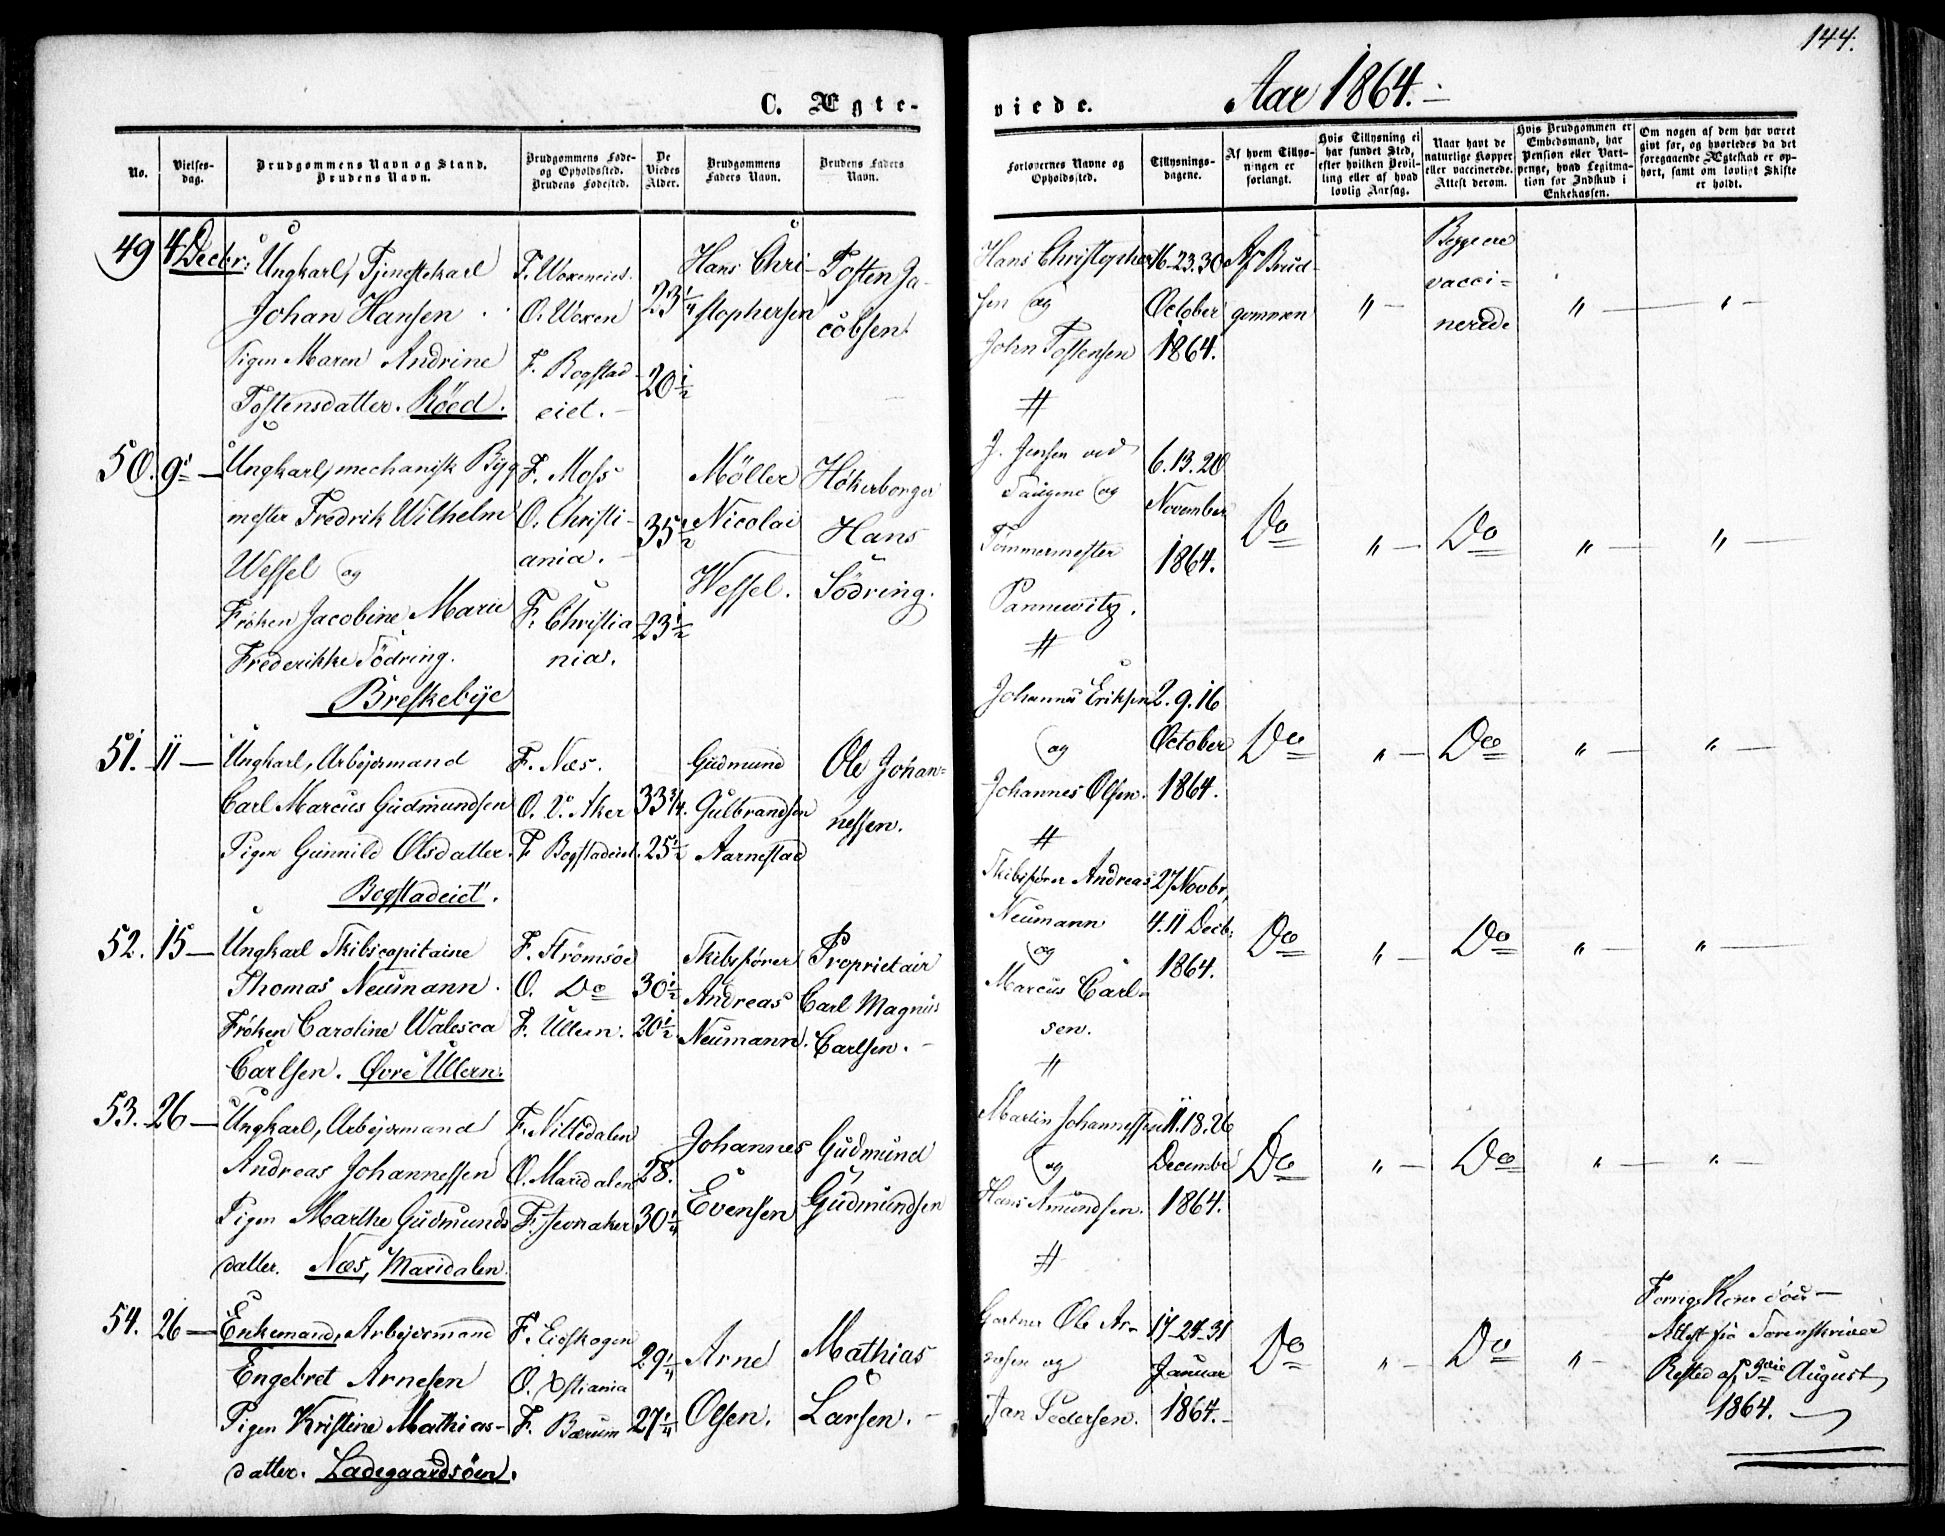 144.
C. Ægte-
viede.
Aar 1864.
No.
Vielses-
dag.
Brudgommens Navn og Stand.
Brudens Navn.
Brudgommens Føde-
og Opholdssted.
Brudens Fødested.
De
Viedes
Alder.
Brudgommens
Faders Navn.
Brudens Faders
Navn.
Forlovernes Navne og
Opholdssted.
Tillysnings-
dagene.
Af hvem Tillys-
ningen er
forlangt.
Hvis Tillysning ei
har fundet Sted,
efter hvilken Bevil-
ling eller af hvad
lovlig Aarsag.
Naar havt de
naturlige Kopper
eller vaccinerede.
Attest derom.
Hvis Brudgommen er
Embedsmand, har
Pension eller Vart-
penge, hvad Legitima-
tion for Indskud i
Enkekassen.
Om nogen af dem har været
givt før, og hvorledes da det
foregaaende Ægteskab er op-
hørt, samt om lovligt Skifte
er holdt.
49 4 Decbr:
Ungkarl, Tjenestekarl
Johan Hansen
Pigen Maren Andrine
Tostensdatter. Röed.
F. Woxeneiet.
O. Woxen
F. Bogstad-
eiet.
23 1/4
20 1/2
Hans Chri-
stophersen
Tosten Ja-
cobsen.
Hans Christopher-
sen og
John Tostensen
#
16-23.30
October
1864.
Af Brud-
gommen
" -
Begge ere
vacci-
nerede
" -
" -
50. 9 -
Ungkarl, mechanisk Byg-
mester Fredrik Wilhelm
Wessel og
Frøken Jacobine Marie
Frederikke Södring.
Breskebÿe
F. Moss
O. Christi-
ania.
F. Christia
nia.
35 1/2
23 1/2
Möller
Nicolai
Wessel.
Høkerborger
Hans
Södring.
J. Jensen ved
Saugene og
Tømmermester
Pannewitz.
#
6.13.20
November
1864.
Do
" -
Do
" -
" -
51. 11 -
Ungkarl, Arbejdsmand
Carl Marcus Gudmundsen
Pigen Gunnild Olsdatter.
Bogstadeiet.
F. Næs.
O. V. Aker
F. Bogstadeiet.
33 3/4.
25 1/2
Gudmund
Gulbrandsen
Aarnestad
Ole Johan-
nessen.
Johannes Eriksen
og
Johannes Olsen.
#
2. 9. 16
October
1864.
Do
" -
Do
" -
" -
52. 15 -
Ungkarl Skibscapitaine
Thomas Neumann.
Frøken Caroline Walesca
Carlsen. Øvre Ullern.
F. Strömsöe
O. Do
F. Ullern.
30 1/2
20 1/2.
Skibsfører
Andreas
Neumann.
Proprietair
Carl Magnus
Carlsen. -
Skibsfører Andreas
Neumann
og
Marcus Carl-
sen.
#
27 Novbr,
4.11 Decb:
1864.
Do
" -
Do
" -
" -
53. 26 -
Ungkarl, Arbejdsmand
Andreas Johannessen
Pigen Marthe Gudmunds
datter. Næs, Maridalen.
F. Nittedalen
O. Maridalen
28.
30 1/4
Johannes
Evensen
Gudmund
Gudmundsen
Martin Johannessen
og
Hans Amundsen.
#
11.18.26
Decembr
1864.
Do
" -
Do
" -
" -
54. 26 -
Enkemand, Arbejdsmand
Engebret Arnesen
Pigen Kristine Mathias-
datter. Ladegaardsöen.
F. Eidskogen
O. Xstiania
F. Bærum
29 1/4
27 1/4
Arne
Olsen.
Mathias
Larsen. -
Gartner Ole Ar-
nesen og
Jan Pedersen.
17-24-31
Januar
1864. -
Do
" -
Do
" -
Forrige Kone død -
Attest fra Sorenskriver
Rested af August
1864.